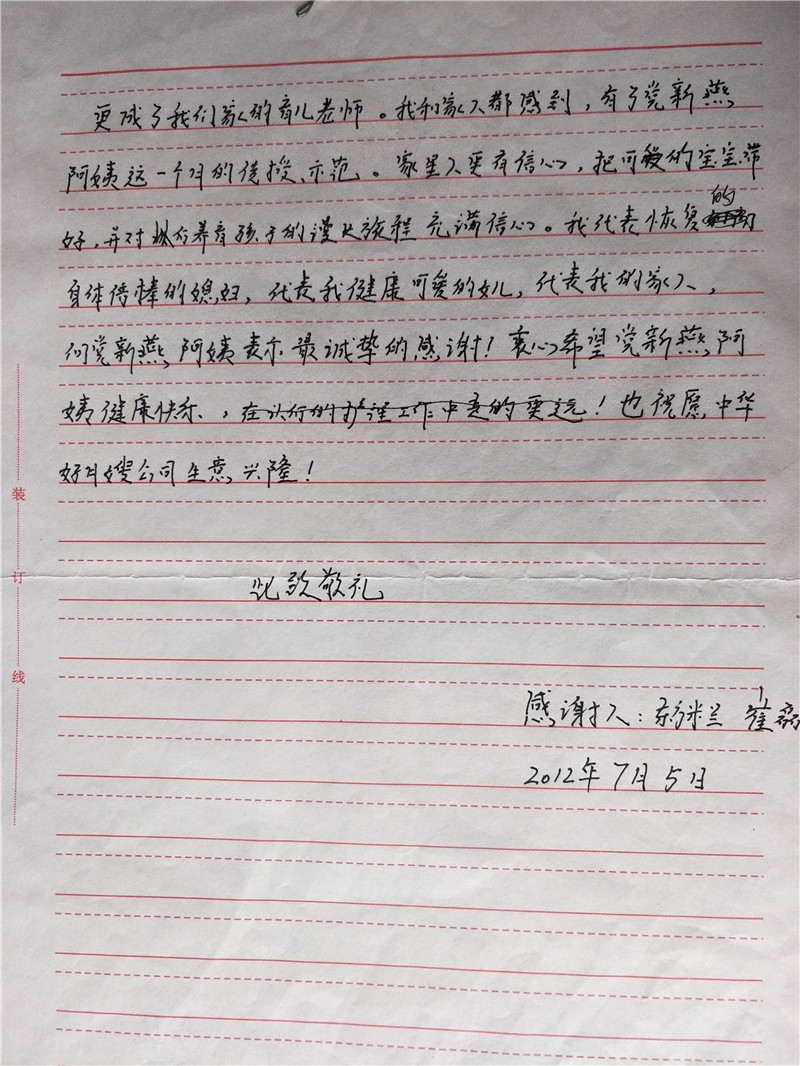 更成了我们家的育儿老师。我和家人都感到，有了党新燕
阿姨这一个月的传授、示范。家里人更有信心，把可爱的宝宝带
好，并对抚养孩子的漫长旅程充满信心。我代表恢复的
身体倍棒的媳妇，代表我健康可爱的女儿，代表我的家人，
向党新燕阿姨表示最诚挚的感谢！衷心希望党新燕阿
姨健康快乐，在以后的护理工作中走的更远！也祝愿中华
好月嫂公司生意兴隆！
此致敬礼
感谢人：
2012年7月5日
装
订
线